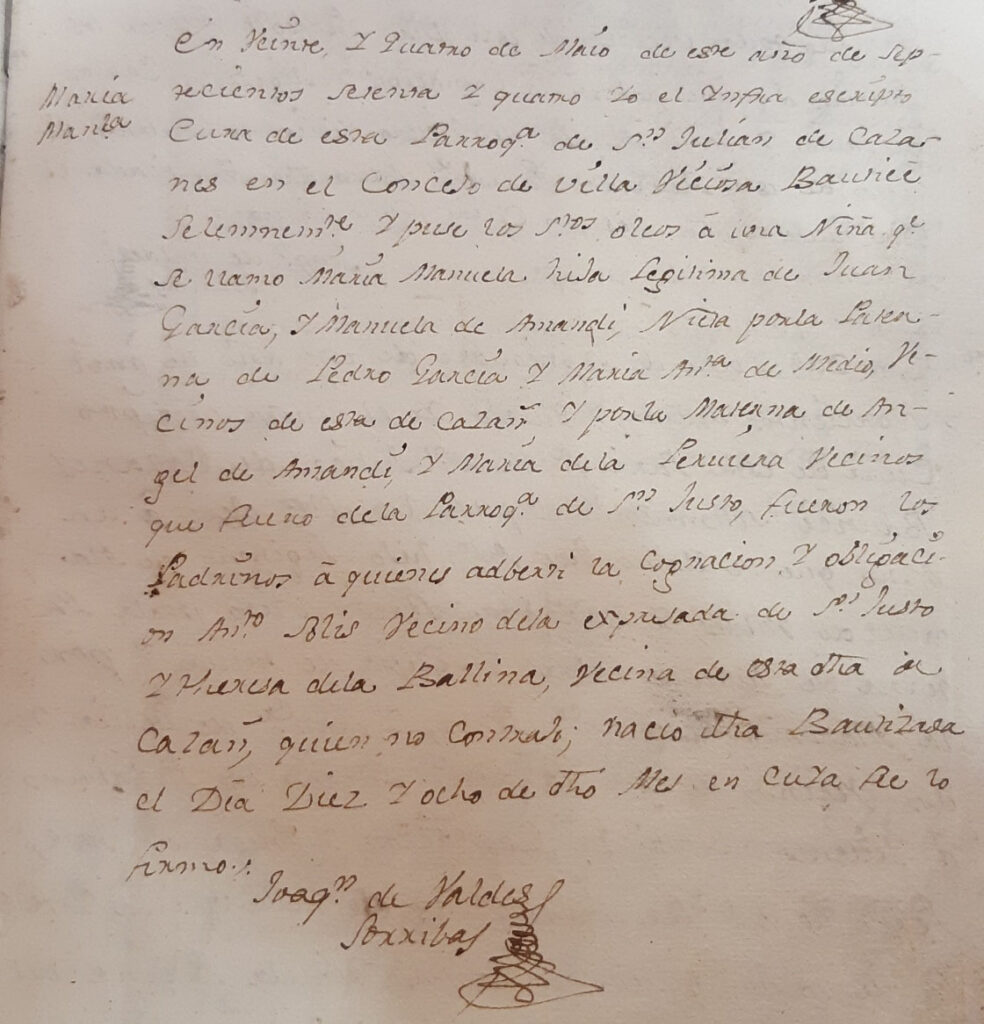 María
Manla
En Veinte, Y Quatro de Maio de este año de Sep-
tecientos Setenta Y quatro Yo el Ynfra escripto
Cura de esta Parroqª de Sn Julián de Caza-
nes en el Concejo de Villa Viciosa Bauticé
Solemnemte Y puse los Stos oleos â una Niña qe
se llamo María Manuela hija Legitima de Juan
García, Y Manuela de Amandi, Nieta por la Pater-
na de Pedro García Y María Antª de Medio, Ve-
cinos de esta de Cazañ Y por la Materna de An-
gel de Amandi, Y María dela Peruiera Vecinos
que fueron dela Parroqª de Sn Justo, fueron los
Padrinos â quienes adberti la Cognacion Y obligaci-
on Anto Solis Vecino dela expresada de Sn Justo
Y Theresa dela Ballina, Vecina de esta dha de
Cazañ, quien no Contrajo; nacio dha Bautizada
el Día Diez Y ocho de dho Mes en Cuya fee lo
firmo.
Joaqn de Valdes
Sorribas